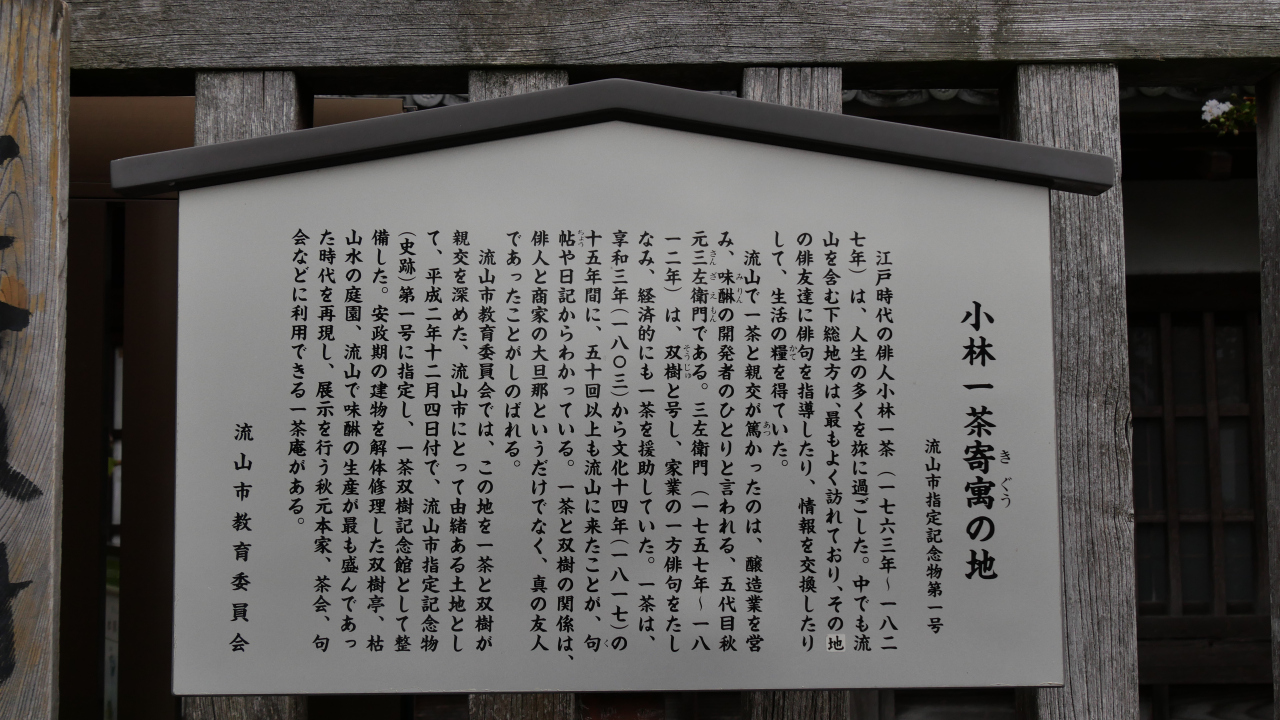 小林一茶寄寓の地
きぐう
流山市指定記念物第一号
江戸時代の俳人小林一茶(一七六三年～一八二
七年)は、人生の多くを旅に過ごした。中でも流
山を含む下総地方は、最もよく訪れており、その地
の俳友達に俳句を指導したり、情報を交換したり
して、生活の糧を得ていた。
かて
流山で一茶と親交が篤かったのは、醸造業を営
あつ
み、味醂の開発者のひとりと言われる、五代目秋
みりん
元三左衛門である。三左衛門(一七五七年～一八
さんざえもん
一二年)は、双樹と号し、家業の一方俳句をたし
そうじゅ
なみ、経済的にも一茶を援助していた。一茶は、
享和三年(一八〇三)から文化十四年(一八一七)の
十五年間に、五十回以上も流山に来たことが、句
く
帖や日記からわかっている。一茶と双樹の関係は、
ちょう
俳人と商家の大旦那というだけでなく、真の友人
であったことがしのばれる。
流山市教育委員会では、この地を一茶と双樹が
親交を深めた、流山市にとって由緒ある土地とし
て、平成二年十二月四日付で、流山市指定記念物
(史跡)第一号に指定し、一茶双樹記念館として整
備した。安政期の建物を解体修理した双樹亭、枯
山水の庭園、流山で味醂の生産が最も盛んであっ
た時代を再現し、展示を行う秋元本家、茶会、句
会などに利用できる一茶庵がある。
流山市教育委員会